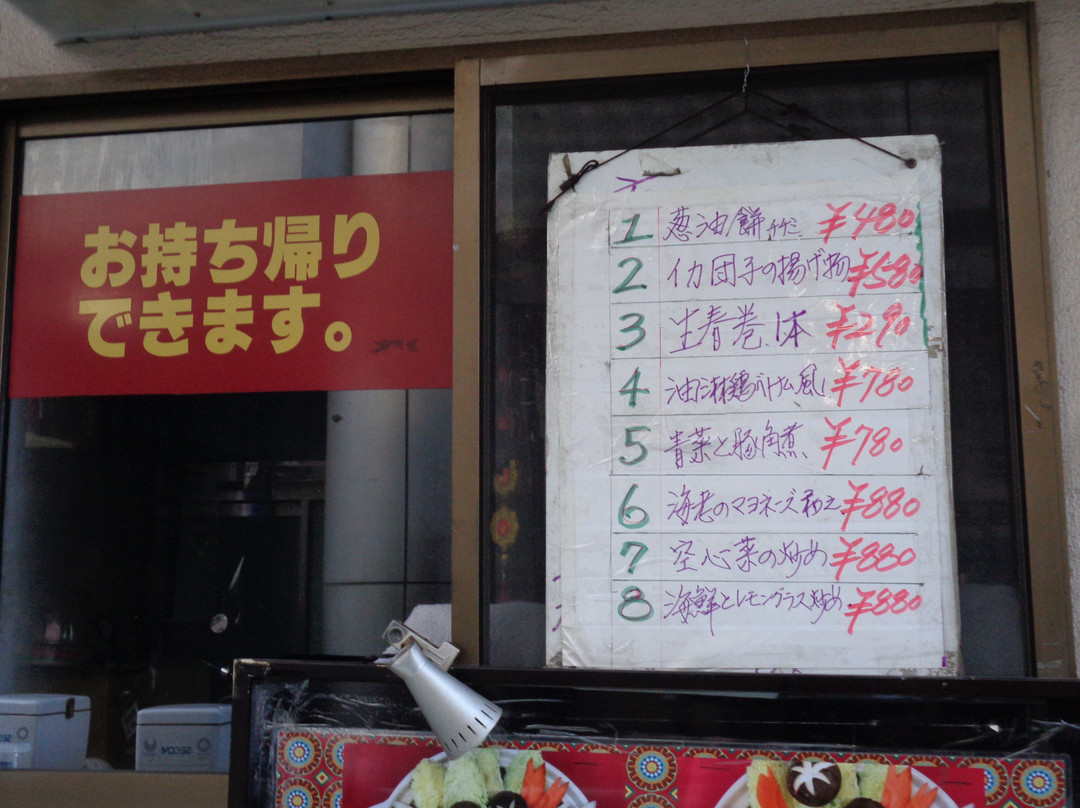 お持ち帰り
できます。
1 葱油餅 ¥480
2 イカ団子の揚げ物 ¥580
3 生春巻 1本 ¥290
4 油淋鶏 風 ¥780
5 青菜と豚角煮 ¥780
6 海老のマヨネーズ和え ¥880
7 空心菜の炒め ¥880
8 海鮮とレモングラス炒め ¥880
SECOM